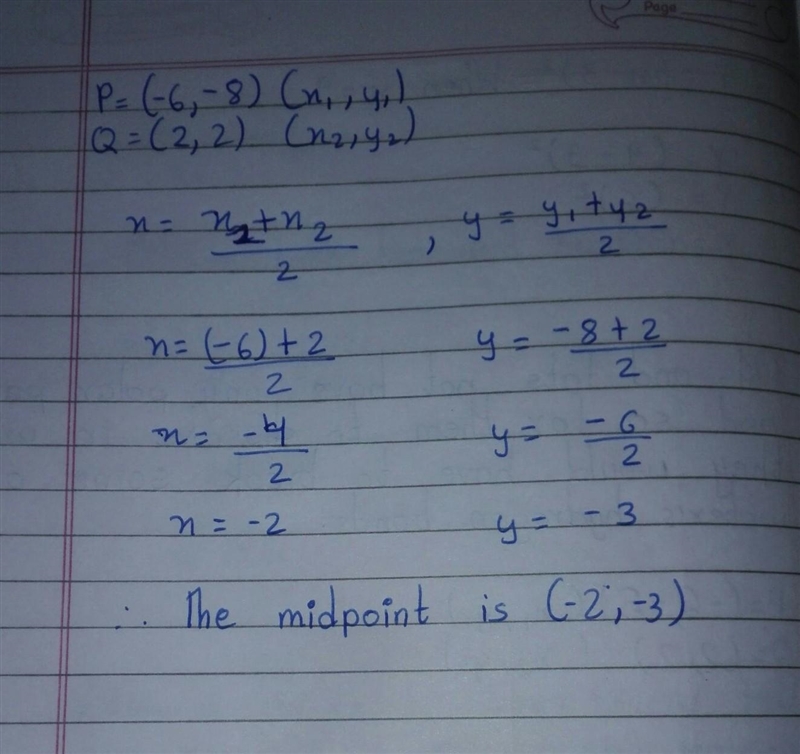 Page
P= (-6, -8) (x₁, y₁)
Q = (2, 2) (x₂, y₂)
x = x₂+x₂/2 , y = y₁+y₂/2
x = (-6)+2/2 y = -8+2/2
x = -4/2 y = -6/2
x = -2 y = -3
∴ The midpoint is (-2, -3)